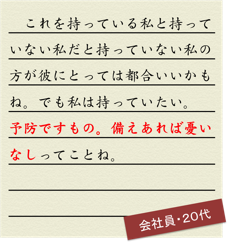 これを持っている私と持って
いない私だと持っていない私の
方が彼にとっては都合いいかも
ね。でも私は持っていたい。
予防ですもの。備えあれば憂い
なしってことね。
会社員・20代